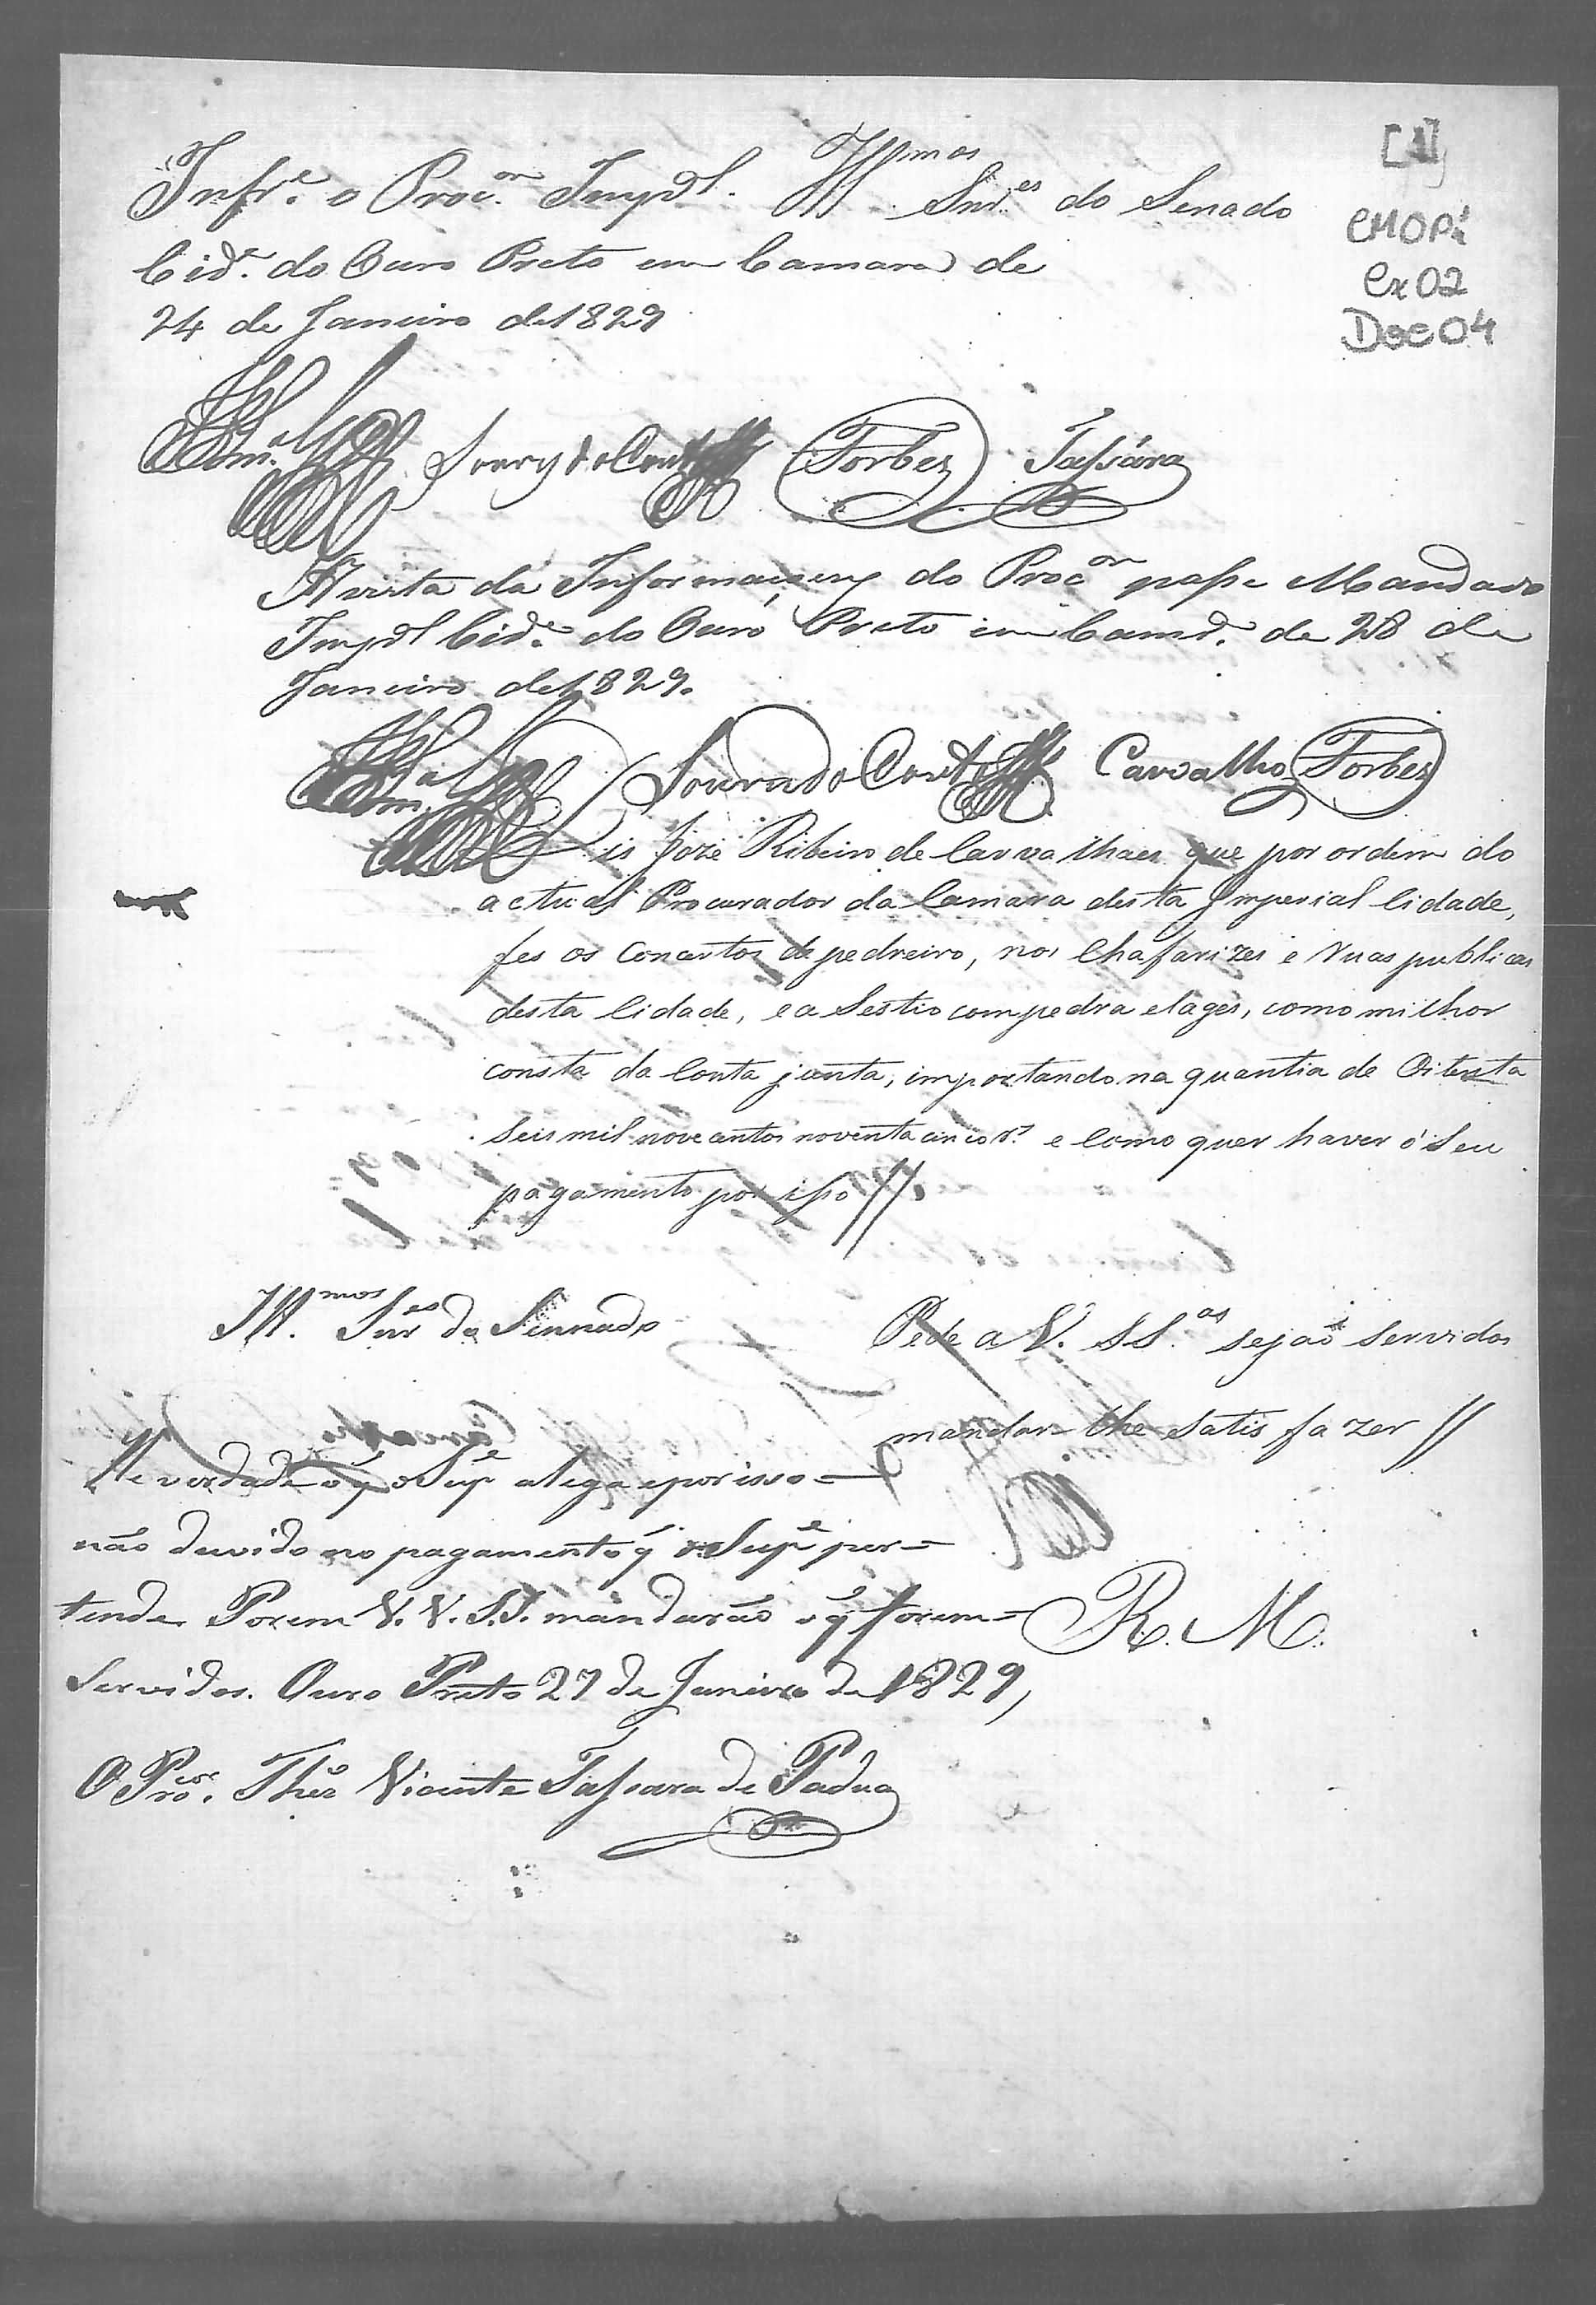 [1]
CMOP
Cx 02
Doc 04
Infr.e o Proc.or Impal. Ill.mos Snr.es do Senado
Cid.e do Ouro Preto em Camara de
24 de Janeiro de 1829
Forbes Tassára
A vista da Informaçaõ do Proc.or passe Mandado
Impal Cid.e do Ouro Preto em Cam.ra de 28 de
Janeiro de 1829.
Carvalho Forbes
Jozé Ribeiro de Carvalhaes que por ordem do
actual Procurador da Camara desta Imperial Cidade,
fes os Concertos de pedreiro, nos Chafarizes e Ruas publicas
desta Cidade, e a Sestio com pedra e lages, como milhor
consta da Conta junta, importando na quantia de Oitenta
seis mil novecentos noventa cinco r.s e Como quer haver o seu
pagamento por isso //
Ill.mos Snr.es do Sennado
Pede a V. SS.as sejaõ servidos
mandar-lhe Satisfazer //
He verdade o q̃ o Sup.e alega e por isso
não duvido no pagamento q̃ o Sup.e per=
tende Porem V. V. S.S. mandarão o q̃ forem
Servidos. Ouro Preto 27 de Janeiro de 1829,
R. M.
O Pro.cor The.o Vicente Tassara de Padua